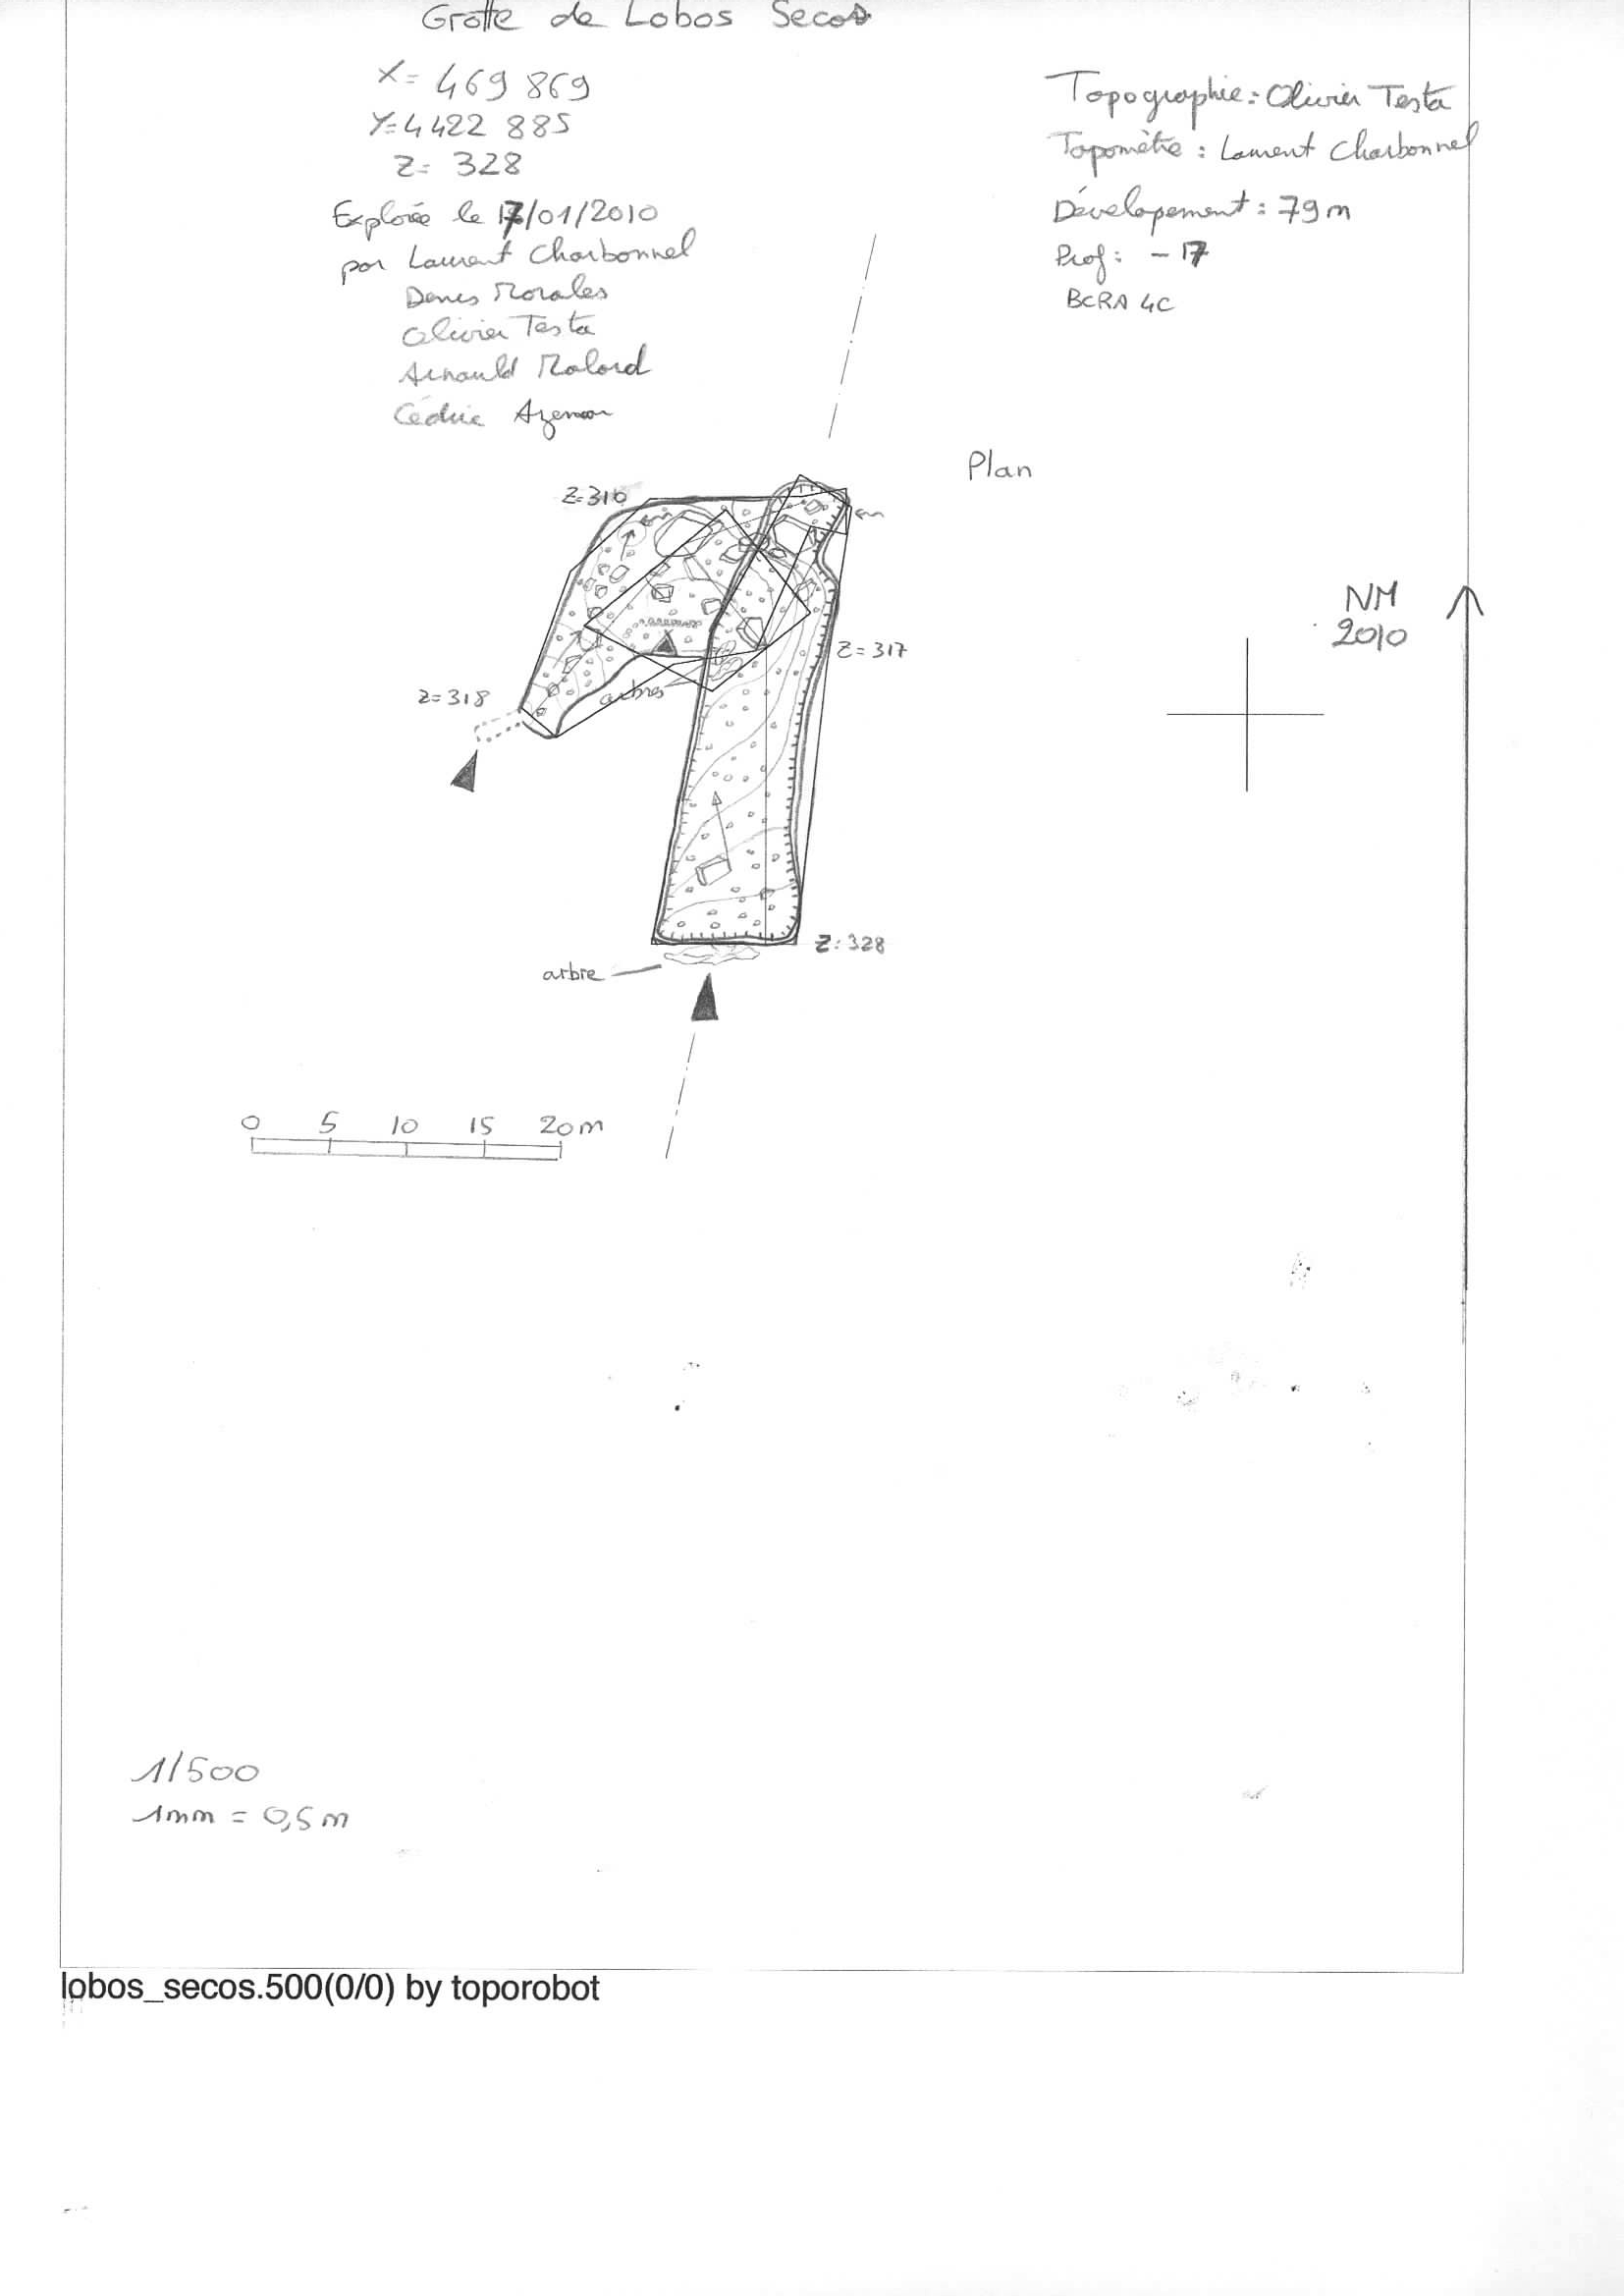 Grotte de Lobos Secos
X= 469 869
Y=4 422 885
Z= 328
Explorée le 17/01/2010
par Laurent Charbonnel
Denis Morales
Olivier Testa
Arnauld Malard
Cédric
Topographie : Olivier Testa
Topomètre : Laurent Charbonnel
Dévelopement : 79 m
Prof : - 17
BCRA 4C
Plan
Z=310
NM
2010
Z=317
Z=318
arbres
Z=328
arbre
0 5 10 15 20 m
1/500
1mm = 0,5 m
lobos_secos.500(0/0) by toporobot